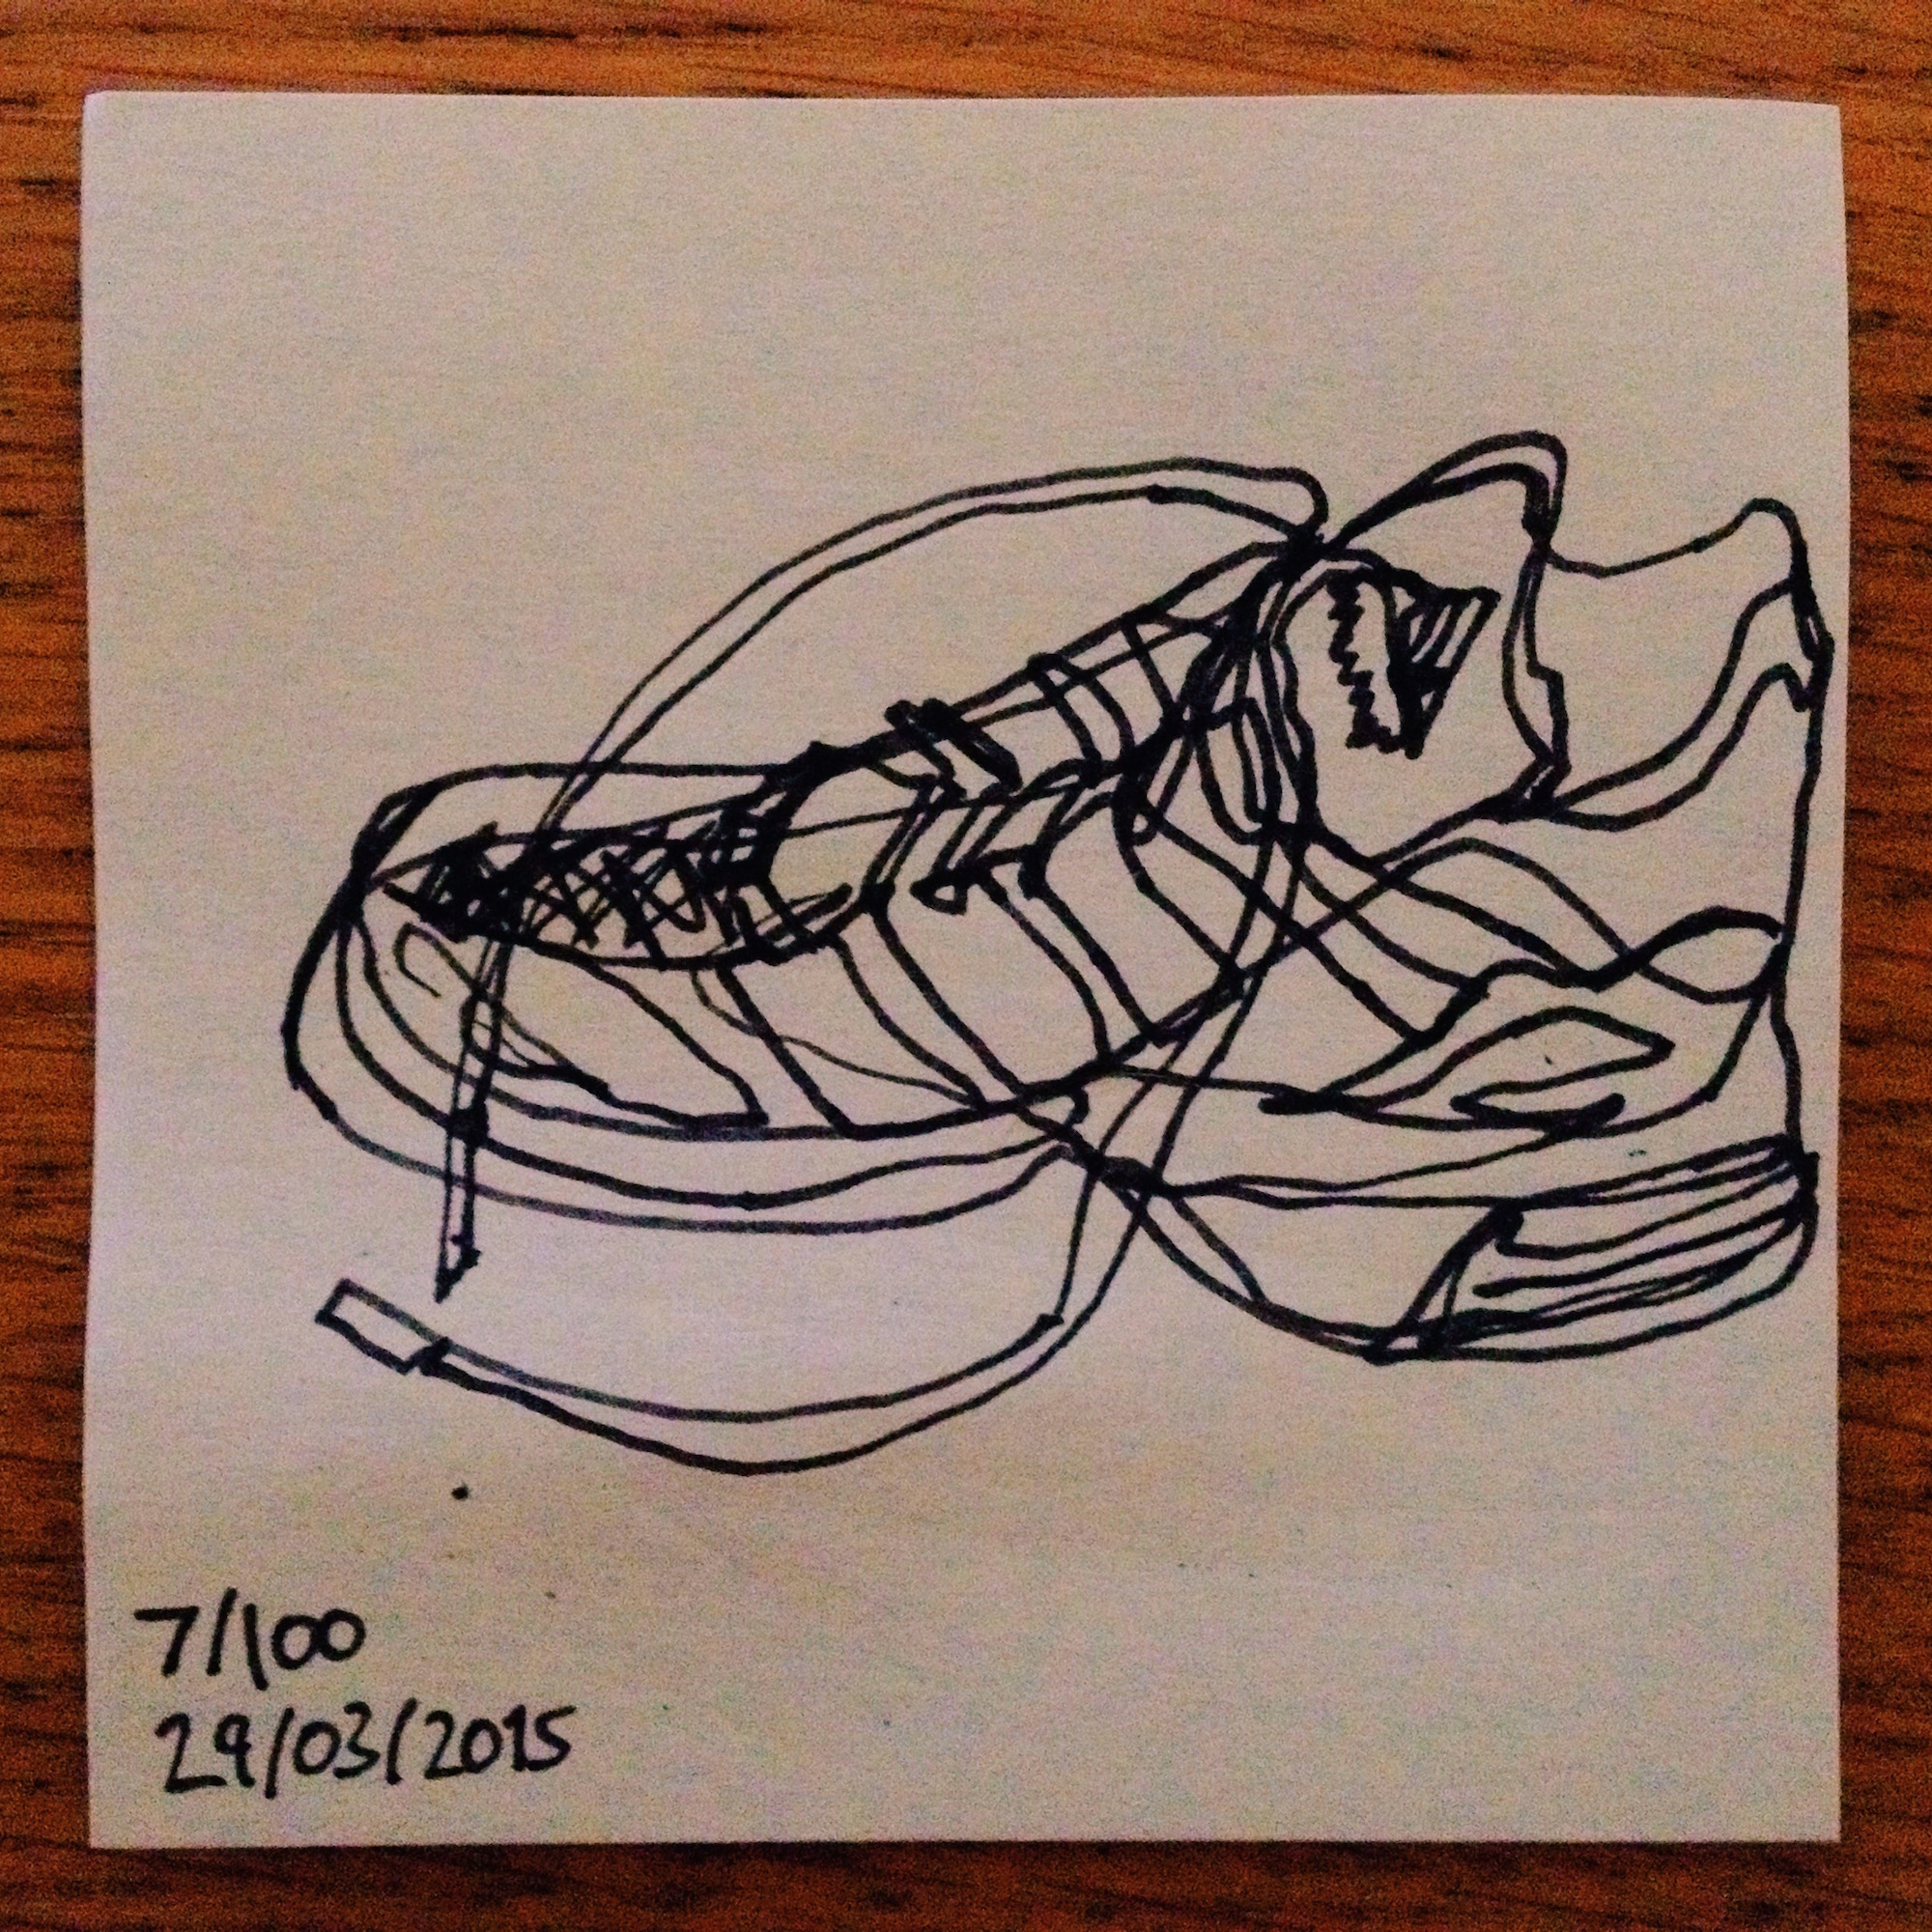 7/100
29/03/2015